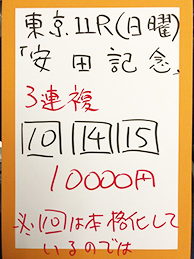 東京11R(日曜)
「安田記念」
3連複
10 14 15
10000円
※10は本格化して
いるのでは